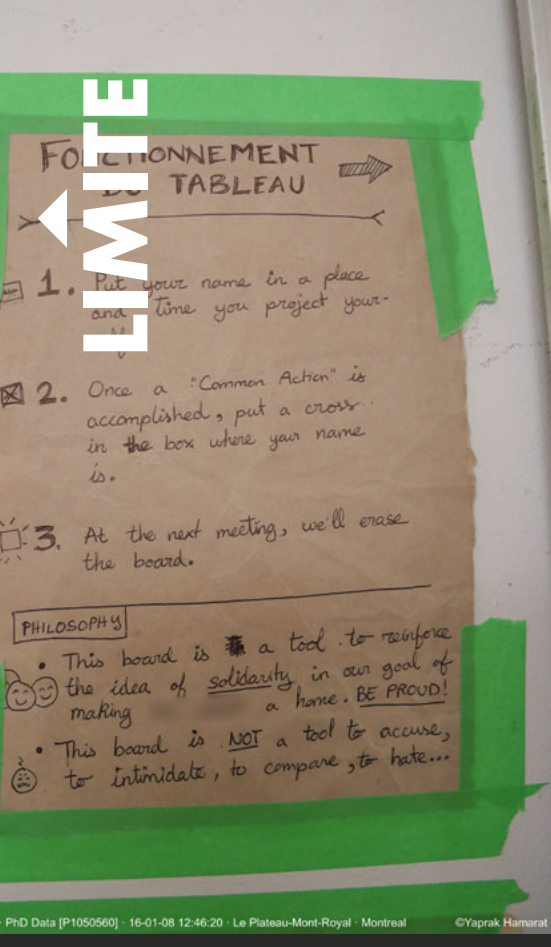 LIMITE
FONCTIONNEMENT
DU TABLEAU
1. Put your name in a place
and time you project your-
2. Once a "Common Action" is
accomplished, put a cross
in the box where your name
is.
3. At the next meeting, we'll erase
the board.
PHILOSOPHY
• This board is a tool to reinforce
the idea of solidarity in our goal of
making a home. BE PROUD!
• This board is NOT a tool to accuse,
to intimidate, to compare, to hate...
· PhD Data [P1050560] · 16-01-08 12:46:20 · Le Plateau-Mont-Royal · Montreal ©Yaprak Hamarat